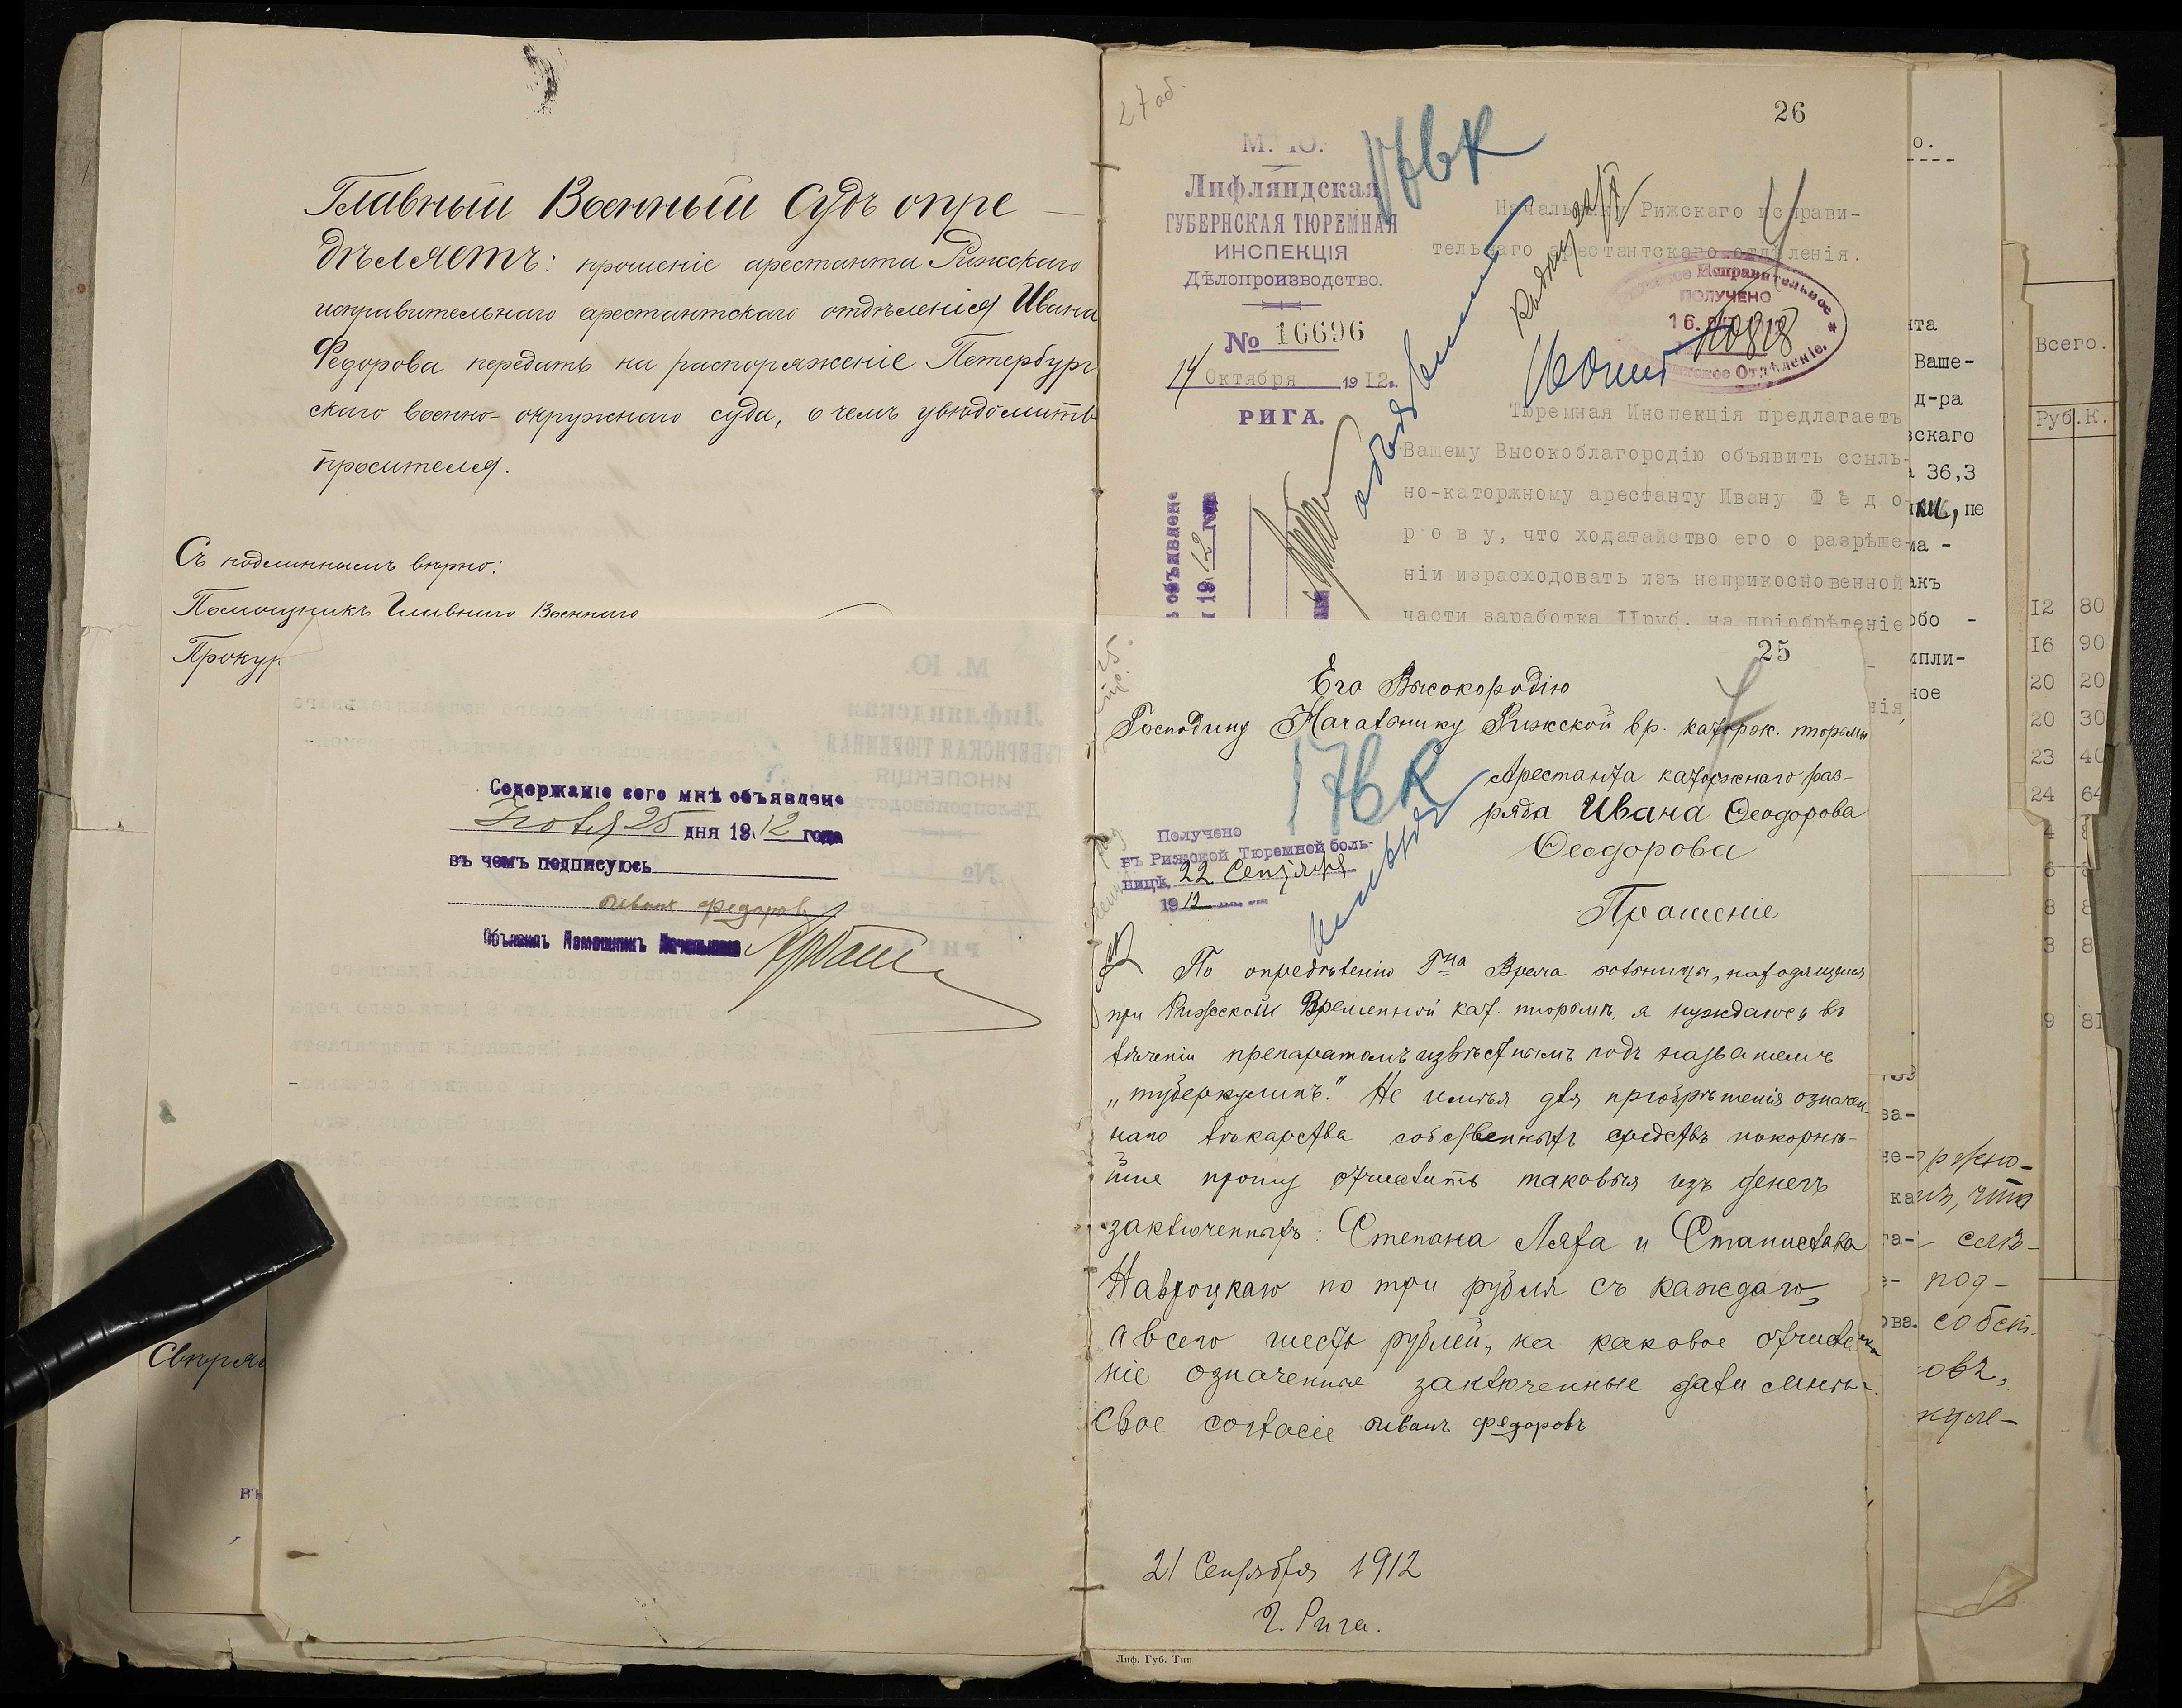 Главный Военный Судъ опре
дѣляетъ: прошеніе арестанта Рижскаго
исправительнаго арестантскаго отдѣленія Ивана
Федорова передать на распоряженіе Петербург
скаго военно-окружнаго суда, о чемъ увѣдомить
просителя.
Съ подлиннымъ вѣрно:
Помощникъ Главнаго Военнаго
Прокур
Содержаніе сего мнѣ объявлено
25 дня 1912 года
въ чемъ подписуюсь
Иванъ Федоров
Объявилъ Помощникъ Начальника
Свѣрял
въ
27 об.
26
М. Ю.
Лифляндская
ГУБЕРНСКАЯ ТЮРЕМНАЯ
ИНСПЕКЦІЯ
Дѣлопроизводство.
№ 16696
14 Октября 1912г.
РИГА.
176к
Начальнику Рижскаго исправи-
тельнаго арестантскаго отдѣленія.
Исправительное
ПОЛУЧЕНО
16.
Отдѣленіе.
Тюремная Инспекція предлагаетъ
Вашему Высокоблагородію объявить ссыль-
но-каторжному арестанту Ивану Ѳ ѣ д о-
р о в у, что ходатайство его о разрѣше-
ніи израсходовать изъ неприкосновенной
части заработка 11руб. на пріобрѣтеніе
объявлено
1912 года
25
Его Высокородію
Господину Начальнику Рижской вр. каторж. тюрьмы
176к
Арестанта каторжнаго раз-
ряда Ивана Ѳеодорова
Ѳеодорова
Получено
въ Рижской Тюремной боль-
ницѣ. 22 Сентября
1912
Прошеніе
По опредѣленію Гна Врача больницы, находящейся
при Рижской Временной кат. тюрьмѣ, я нуждаюсь въ
лѣченіи препаратомъ извѣстнымъ подъ названіемъ
„туберкулинъ." Не имѣя для пріобрѣтенія означен-
наго лѣкарства собственныхъ средствъ покорнѣ-
йше прошу отчислить таковыя изъ денегъ
заключенныхъ: Степана Ляха и Станислава
Навроцкаго по три рубля съ каждаго,
а всего шесть рублей, на каковое отчисле
ніе означенные заключенные дали мнѣ
свое согласіе Иванъ Федоровъ
21 Сентября 1912
г. Рига.
Лиф. Губ. Тип
о.
Ваше-
д-ра
скаго
36,3
пе
акъ
обо -
ипли-
ное
нія,
Всего.
Руб. К.
12 80
16 90
20 20
20 30
23 40
24 64
9 81